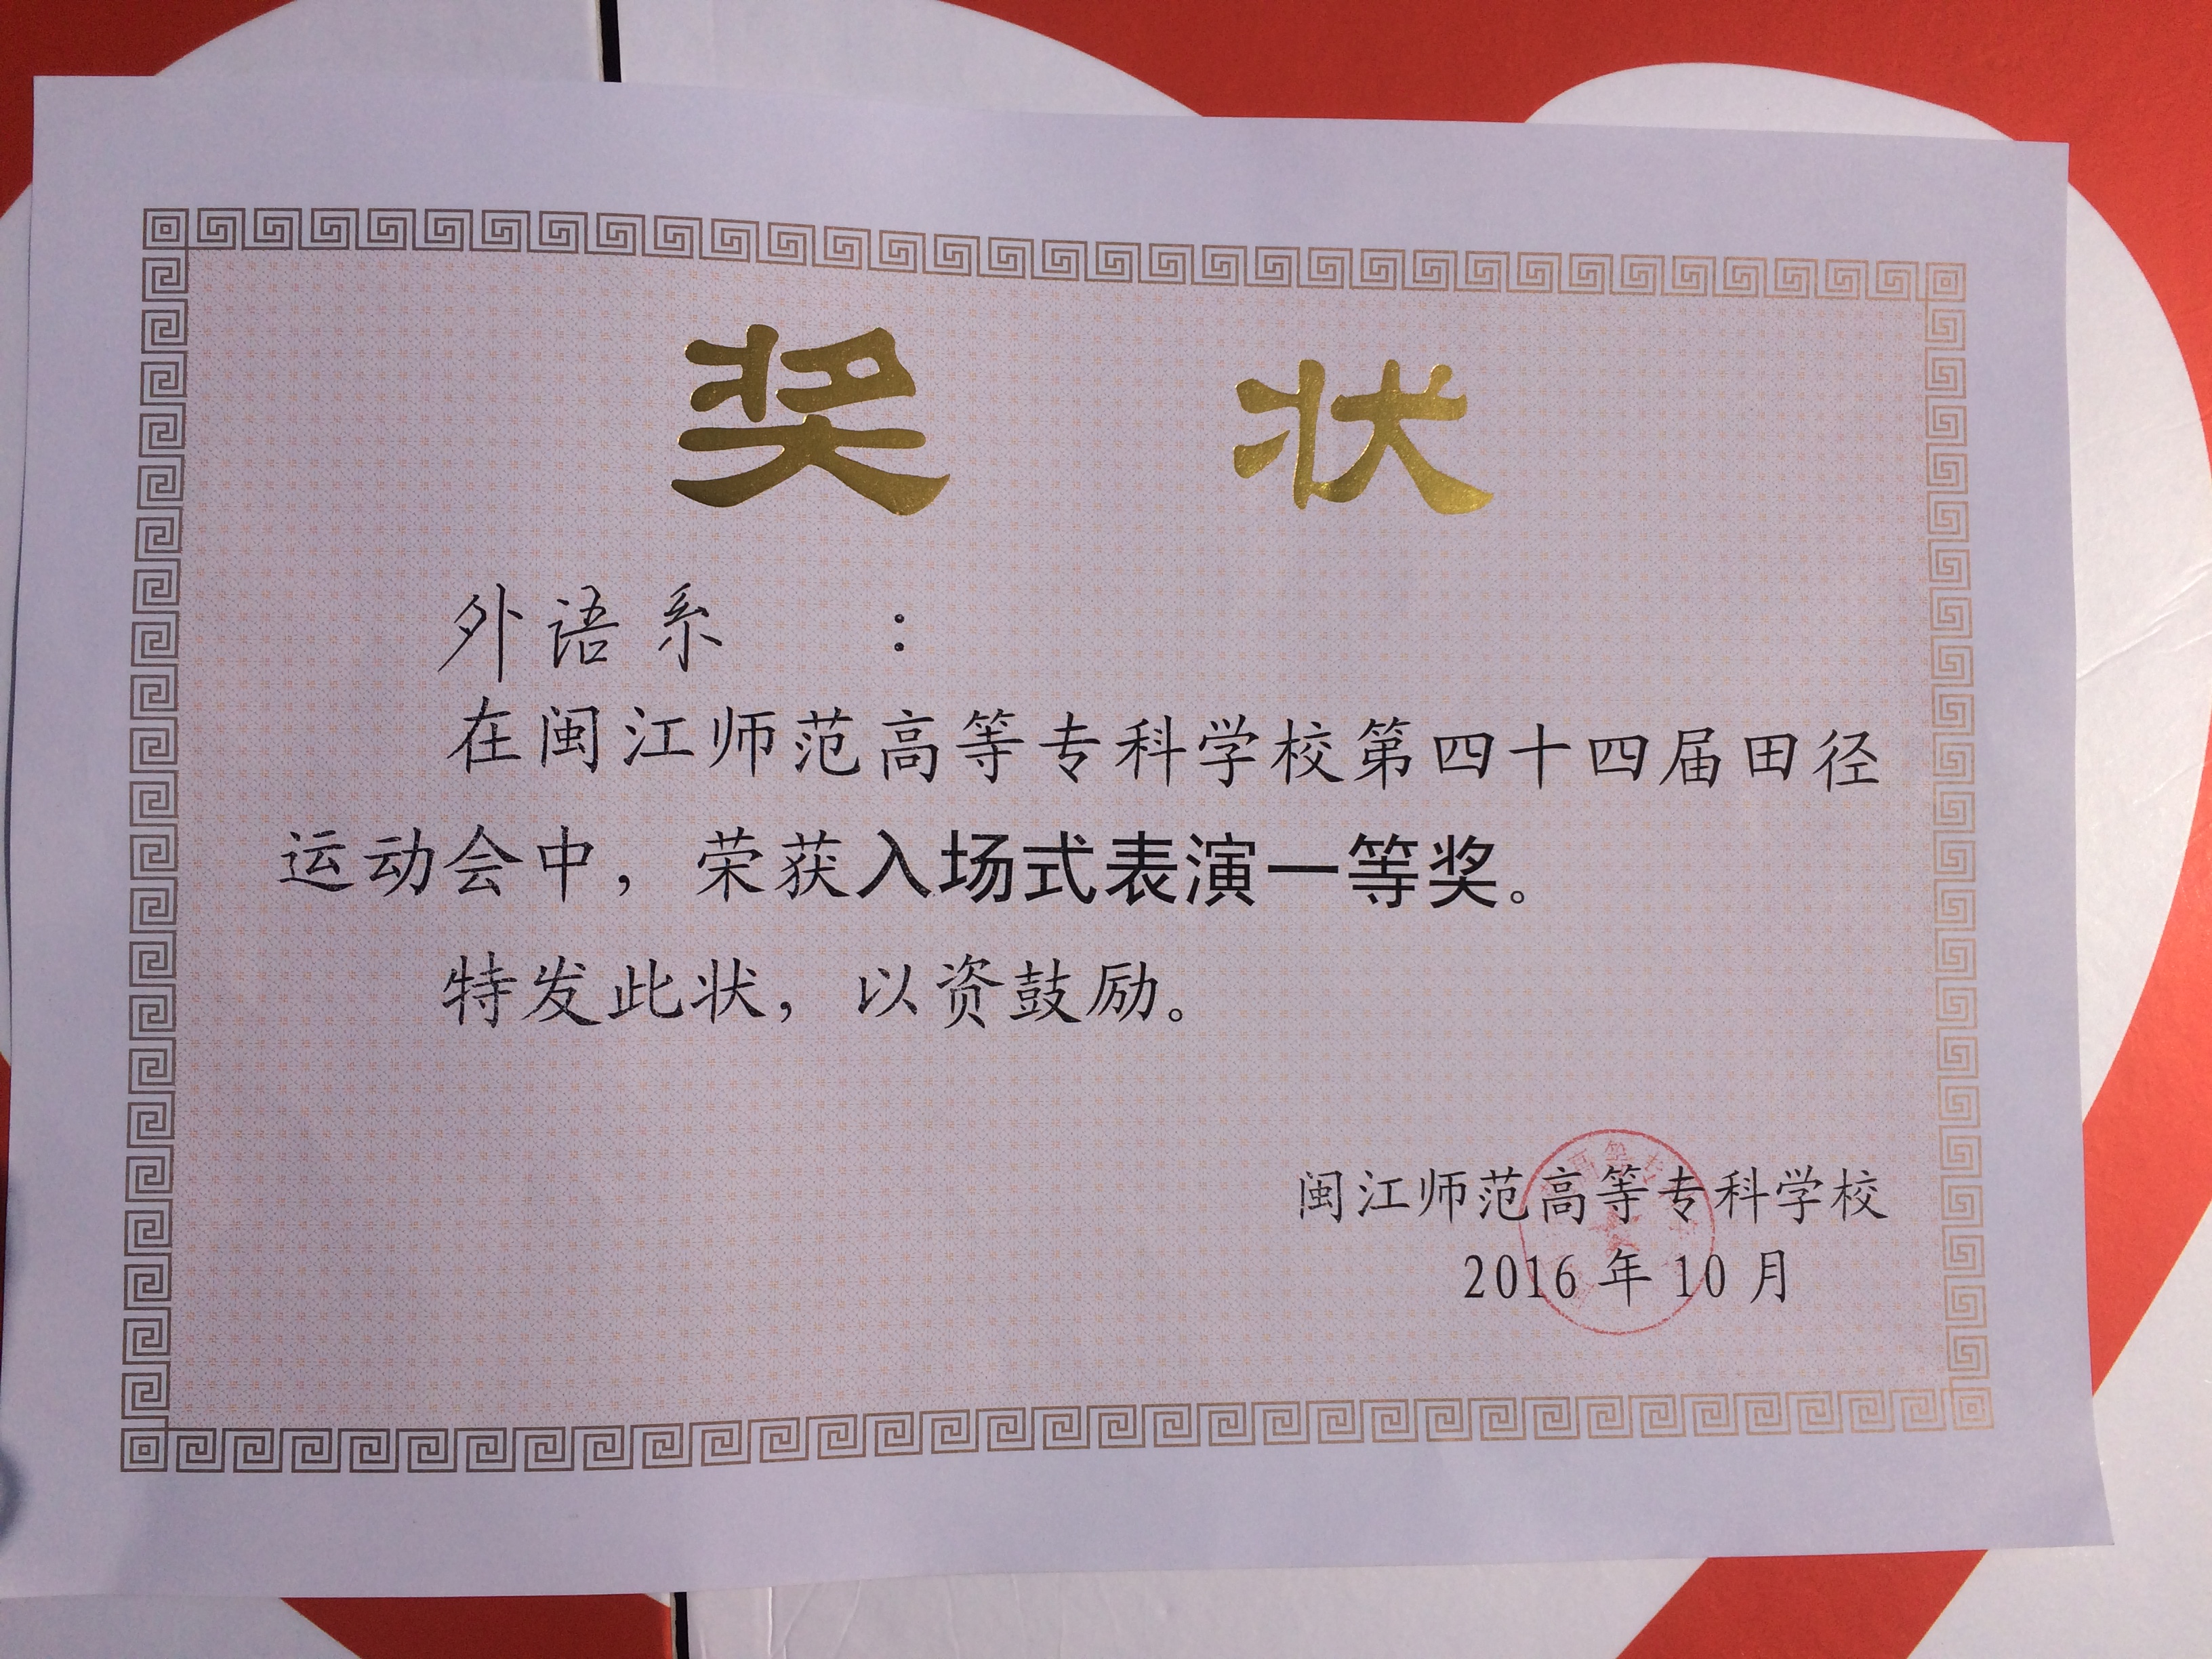 奖 状
外语系 ：
在闽江师范高等专科学校第四十四届田径
运动会中，荣获入场式表演一等奖。
特发此状，以资鼓励。
闽江师范高等专科学校
2016 年 10 月